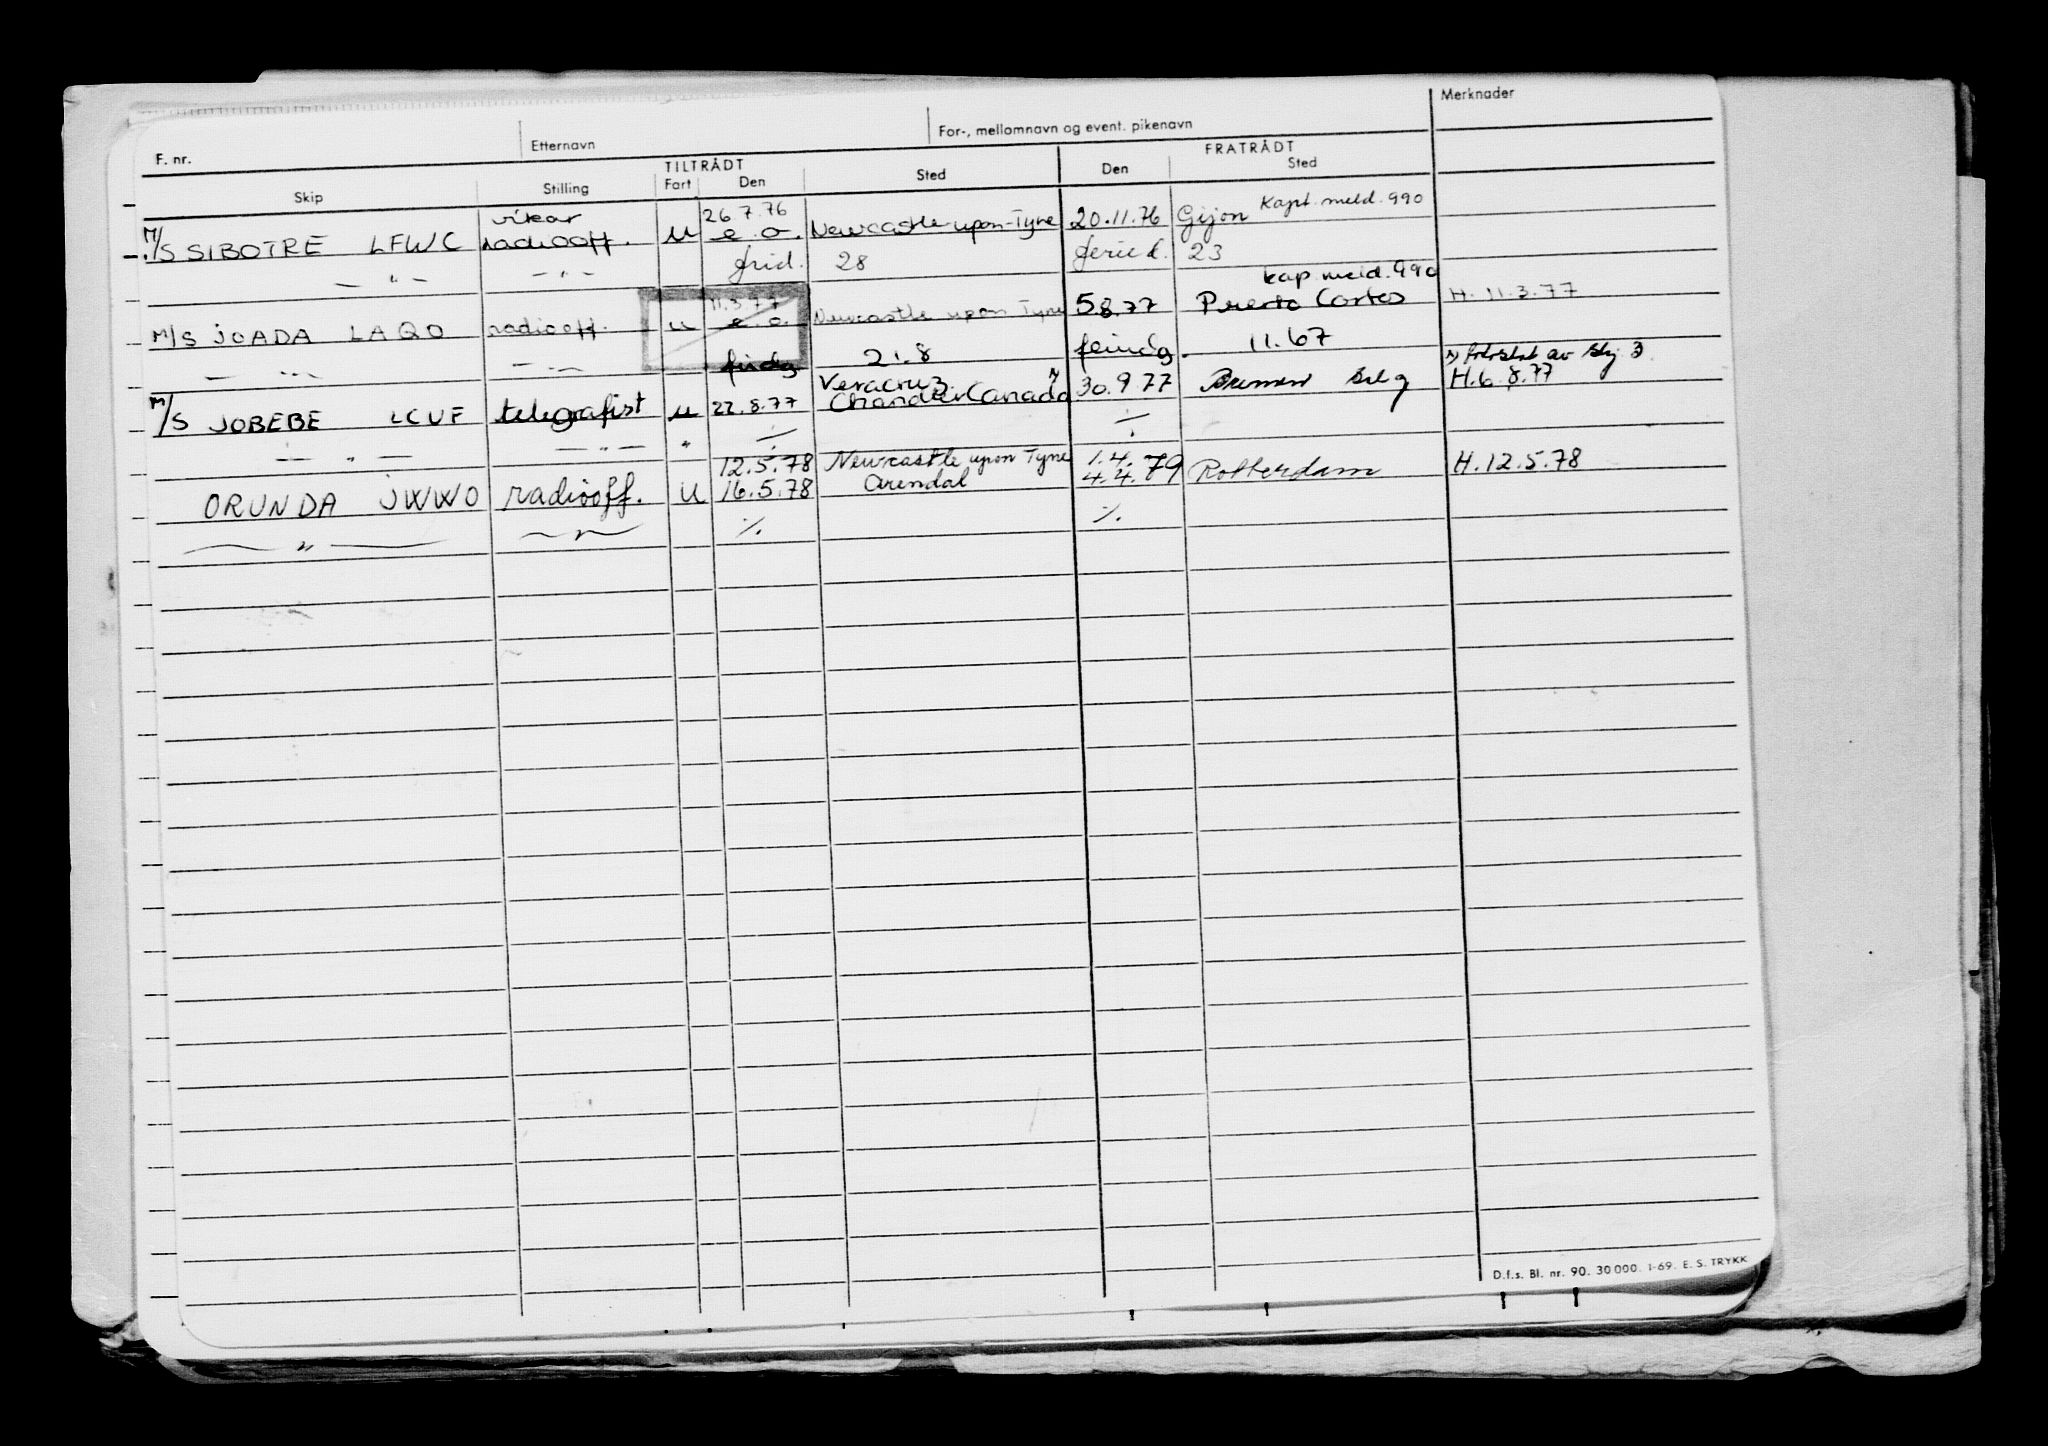 Merknader
F. nr. Etternavn For-, mellomnavn og event. pikenavn
TILTRÅDT FRATRÅDT
Skip Stilling Fart Den Sted Den Sted
vikar 26.7.76 Kapt. meld. 990
M/S SIBOTRE LFWC radiooff. u e.o. Newcastle upon-Tyne 20.11.76 Gijon
— " — — " — frid. 28 ferie d. 23
11.3.77 kap meld. 990
M/S JOADA LAQO radiooff. u e.o. Newcastle upon Tyne 5.8.77 Puerto Cortes H. 11.3.77
— " — — " — 21.8 11.67
Veracruz av 3
M/S JOBEBE LCUF telegrafist u 22.8.77 Chandler Canada 30.9.77 Bremen H.6.8.77
— " — — " — " ./. ./.
12.5.78 Newcastle upon Tyne 1.4.
ORUNDA JWWO radiooff. u 16.5.78 Arendal 4.4.79 Rotterdam H.12.5.78
— " — — " — ./. ./.
D.f.s. Bl. nr. 90. 30 000. 1-69. E. S. TRYKK